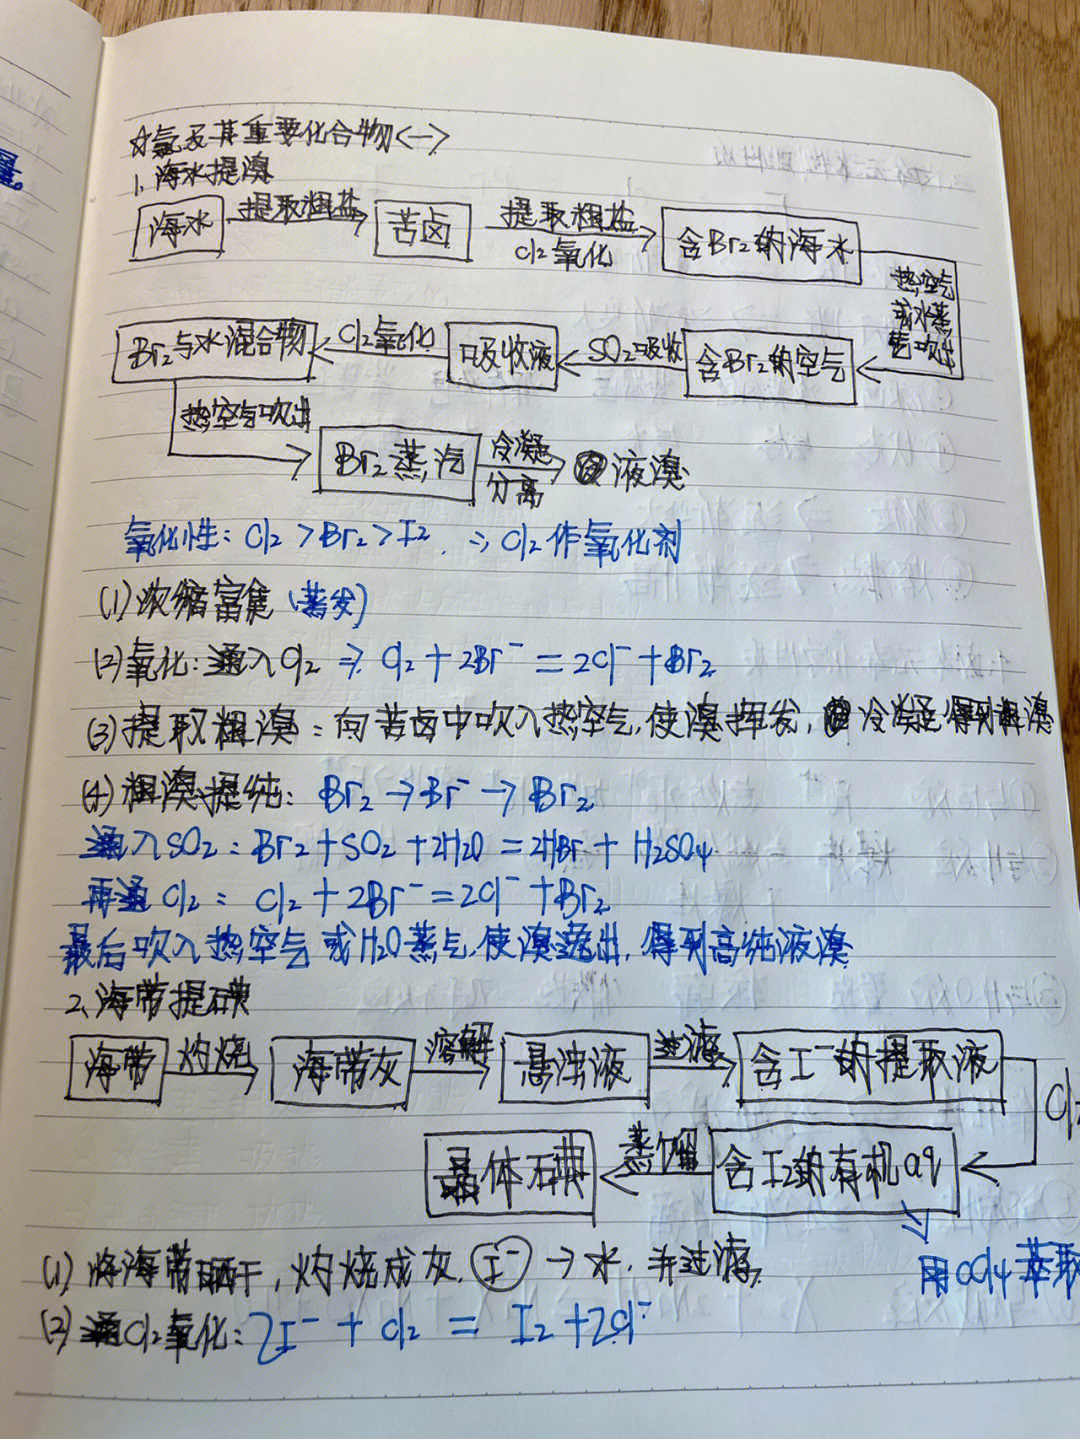 ☆氯及其重要化合物<一>
1、海水提溴
海水 提取粗盐 苦卤 提取粗盐 Cl2氧化 含Br2的海水
热空气或水蒸气吹出
Br2与水混合物 Cl2氧化 吸收液 SO2吸收 含Br2的空气
热空气吹出
Br2蒸汽 冷凝 分离 液溴
氧化性：Cl2 > Br2 > I2 ∴ Cl2作氧化剂
(1) 浓缩富集（蒸发）
(2) 氧化：通入Cl2 ⇒ Cl2 + 2Br⁻ = 2Cl⁻ + Br2
(3) 提取粗溴：向苦卤中吹入热空气，使溴挥发，冷凝得到粗溴
(4) 粗溴提纯：Br2 → Br⁻ → Br2
通入SO2：Br2 + SO2 + 2H2O = 2HBr + H2SO4
再通Cl2：Cl2 + 2Br⁻ = 2Cl⁻ + Br2
最后吹入热空气或H2O蒸气，使溴逸出，得到高纯液溴
2、海带提碘
海带 灼烧 海带灰 溶解 悬浊液 过滤 含I⁻的提取液
Cl2
晶体碘 蒸馏 含I2的有机aq
用CCl4萃取
(1) 将海带晒干，灼烧成灰，I⁻ → 水，并过滤
(2) 通Cl2氧化：2I⁻ + Cl2 = I2 + 2Cl⁻